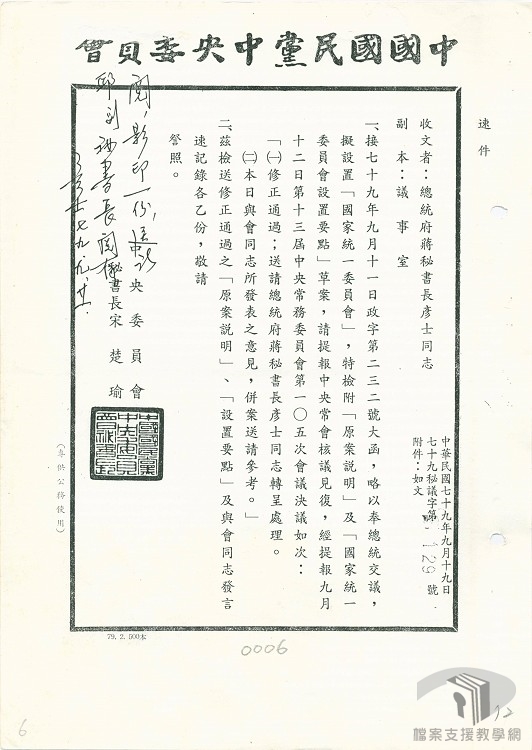 中國國民黨中央委員會
速件
收文者：總統府蔣秘書長彥士同志
副本：議事室
中華民國七十九年九月十九日
七十九秘議字第129號
附件：如文
一、接七十九年九月十一日政字第二三二號大函，略以奉總統交議，
擬設置「國家統一委員會」，特檢附「原案說明」及「國家統一
委員會設置要點」草案，請提報中央常會核議見復，經提報九月
十二日第十三屆中央常務委員會第一〇五次會議決議如次：
「㈠修正通過；送請總統府蔣秘書長彥士同志轉呈處理。
㈡本日與會同志所發表之意見，併案送請參考。」
二、茲檢送修正通過之「原案說明」、「設置要點」及與會同志發言
速記錄各乙份，敬請
詧照。
央委員會
秘書長宋楚瑜
閱，影印一份，送
邱副秘書長閱
七九、九、廿
（專供公務使用）
79.2.500本
0006
6
12
檔案支援教學網